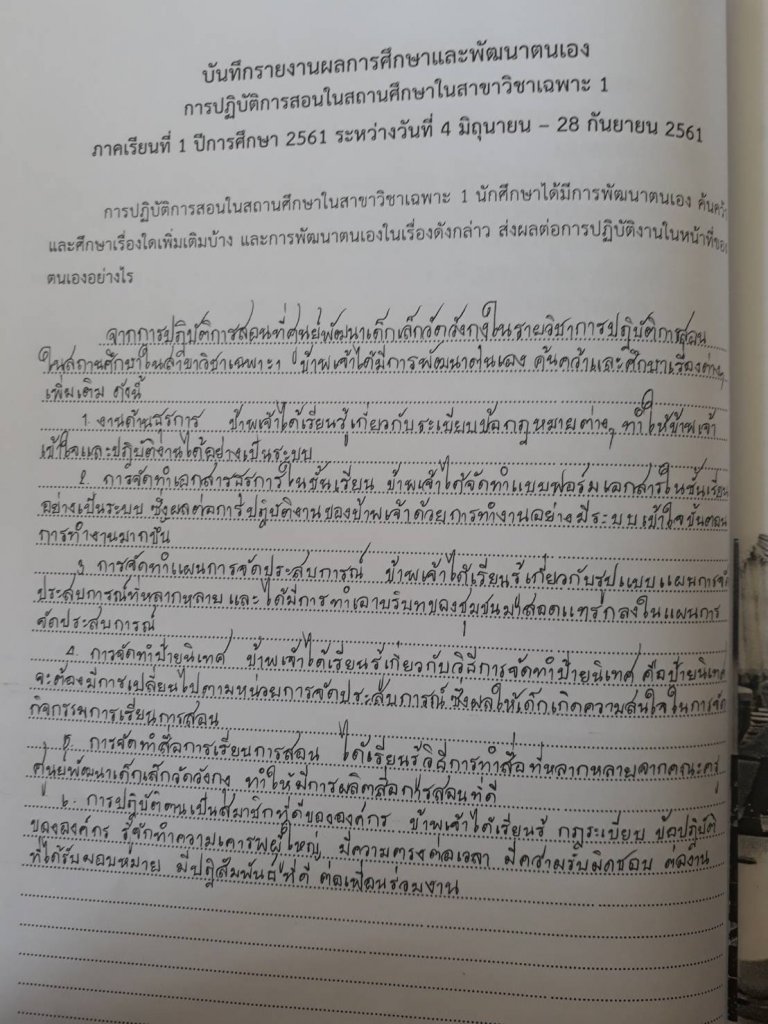 บันทึกรายงานผลการศึกษาและพัฒนาตนเอง
การปฏิบัติการสอนในสถานศึกษาในสาขาวิชาเฉพาะ 1
ภาคเรียนที่ 1 ปีการศึกษา 2561 ระหว่างวันที่ 4 มิถุนายน – 28 กันยายน 2561
การปฏิบัติการสอนในสถานศึกษาในสาขาวิชาเฉพาะ 1 นักศึกษาได้มีการพัฒนาตนเอง ค้นคว้า
และศึกษาเรื่องใดเพิ่มเติมบ้าง และการพัฒนาตนเองในเรื่องดังกล่าว ส่งผลต่อการปฏิบัติงานในหน้าที่ของ
ตนเองอย่างไร
จากการปฏิบัติการสอนที่ศูนย์พัฒนาเด็กเล็กวัดวังกงในรายวิชาการปฏิบัติการสอน
ในสถานศึกษาในสาขาวิชาเฉพาะ1 ข้าพเจ้าได้มีการพัฒนาตนเอง ค้นคว้าและศึกษาเรื่องต่างๆ
เพิ่มเติม ดังนี้
1. งานด้านธุรการ ข้าพเจ้าได้เรียนรู้เกี่ยวกับระเบียบข้อกฎหมายต่างๆ ทำให้ข้าพเจ้า
เข้าใจและปฏิบัติงานได้อย่างเป็นระบบ
2. การจัดทำเอกสารธุรการในชั้นเรียน ข้าพเจ้าได้จัดทำแบบฟอร์มเอกสารในชั้นเรียน
อย่างเป็นระบบ ซึ่งผลต่อการปฏิบัติงานของข้าพเจ้าด้วยการทำงานอย่างมีระบบเข้าใจขั้นตอน
การทำงานมากขึ้น
3. การจัดทำแผนการจัดประสบการณ์ ข้าพเจ้าได้เรียนรู้เกี่ยวกับรูปแบบแผนการจัด
ประสบการณ์ที่หลากหลาย และได้มีการทำเอาบริบทของชุมชนมาสอดแทรกลงในแผนการ
จัดประสบการณ์
4. การจัดทำป้ายนิเทศ ข้าพเจ้าได้เรียนรู้เกี่ยวกับวิธีการจัดทำป้ายนิเทศ คือป้ายนิเทศ
จะต้องมีการเปลี่ยนไปตามหน่วยการจัดประสบการณ์ ซึ่งผลให้เด็กเกิดความสนใจในการจัด
กิจกรรมการเรียนการสอน
5. การจัดทำสื่อการเรียนการสอน ได้เรียนรู้วิธีการทำสื่อที่หลากหลายจากคณะครู
ศูนย์พัฒนาเด็กเล็กวัดวังกง ทำให้มีการผลิตสื่อการสอนที่ดี
6. การปฏิบัติตนเป็นสมาชิกที่ดีขององค์กร ข้าพเจ้าได้เรียนรู้ กฎระเบียบ ข้อปฏิบัติ
ขององค์กร รู้จักทำความเคารพผู้ใหญ่ มีความตรงต่อเวลา มีความรับผิดชอบ ต่องาน
ที่ได้รับมอบหมาย มีปฏิสัมพันธ์ที่ดี ต่อเพื่อนร่วมงาน